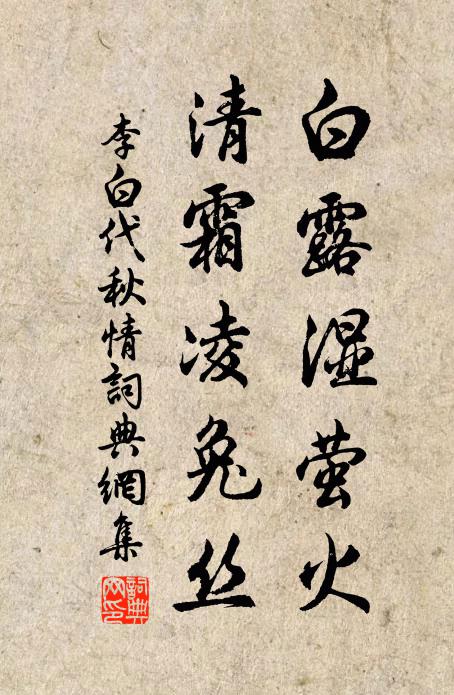 白露湿萤火
清霜凌兔丝
李白代秋情詞典網集
詞典網印